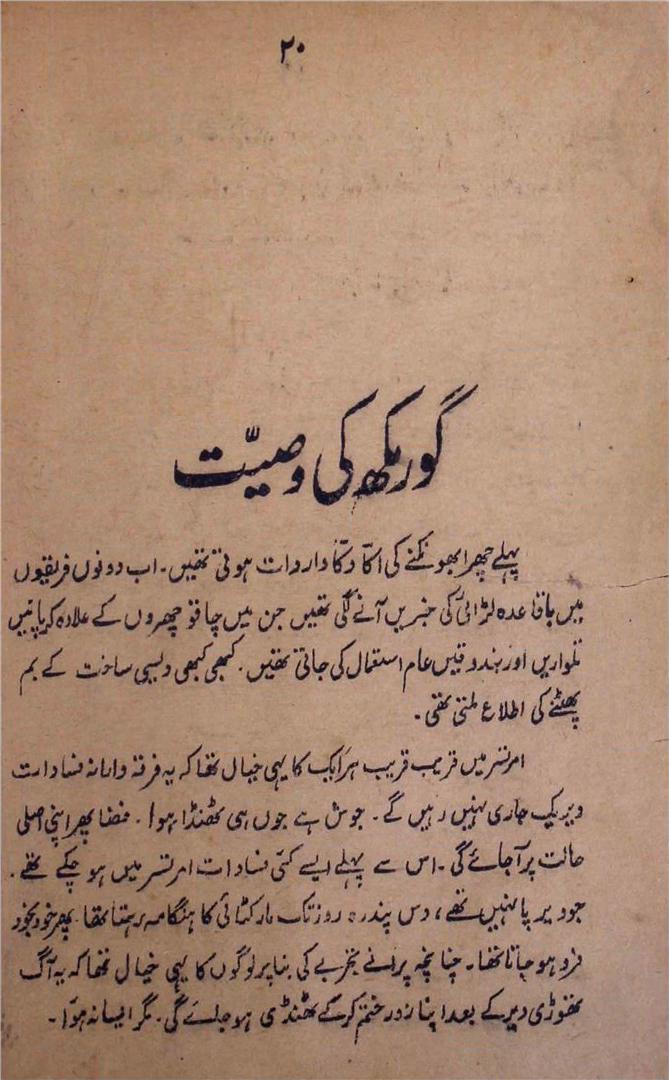 ۲۰
گورمکھ کی وصیّت
پہلے چھرا بھونکنے کی اکّا دکّا واردات ہوتی تھیں۔ اب دونوں فریقیوں
میں باقاعدہ لڑائی کی خبریں آنے لگی تھیں جن میں چاقو چھروں کے علاوہ کرپانیں
تلواریں اور بندوقیں عام استعمال کی جاتی تھیں۔ کبھی کبھی دیسی ساخت کے بم
پھٹنے کی اطلاع ملتی تھی۔
امرتسر میں قریب قریب ہر ایک کا یہی خیال تھا کہ یہ فرقہ وارانہ فسادات
دیر تک جاری نہیں رہیں گے۔ جوش ہے جوں ہی ٹھنڈا ہوا۔ فضا پھر اپنی اصلی
حالت پر آجائے گی۔ اس سے پہلے ایسے کئی فسادات امرتسر میں ہو چکے تھے۔
جو دیر پا نہیں تھے، دس پندرہ روز تک مار کٹائی کا ہنگامہ رہتا تھا۔ پھر خود بخود
فرو ہو جاتا تھا۔ چنانچہ پرانے تجربے کی بنا پر لوگوں کا یہی خیال تھا کہ یہ آگ
تھوڑی دیر کے بعد اپنا زور ختم کرکے ٹھنڈی ہو جائے گی۔ مگر ایسا نہ ہوٗا۔